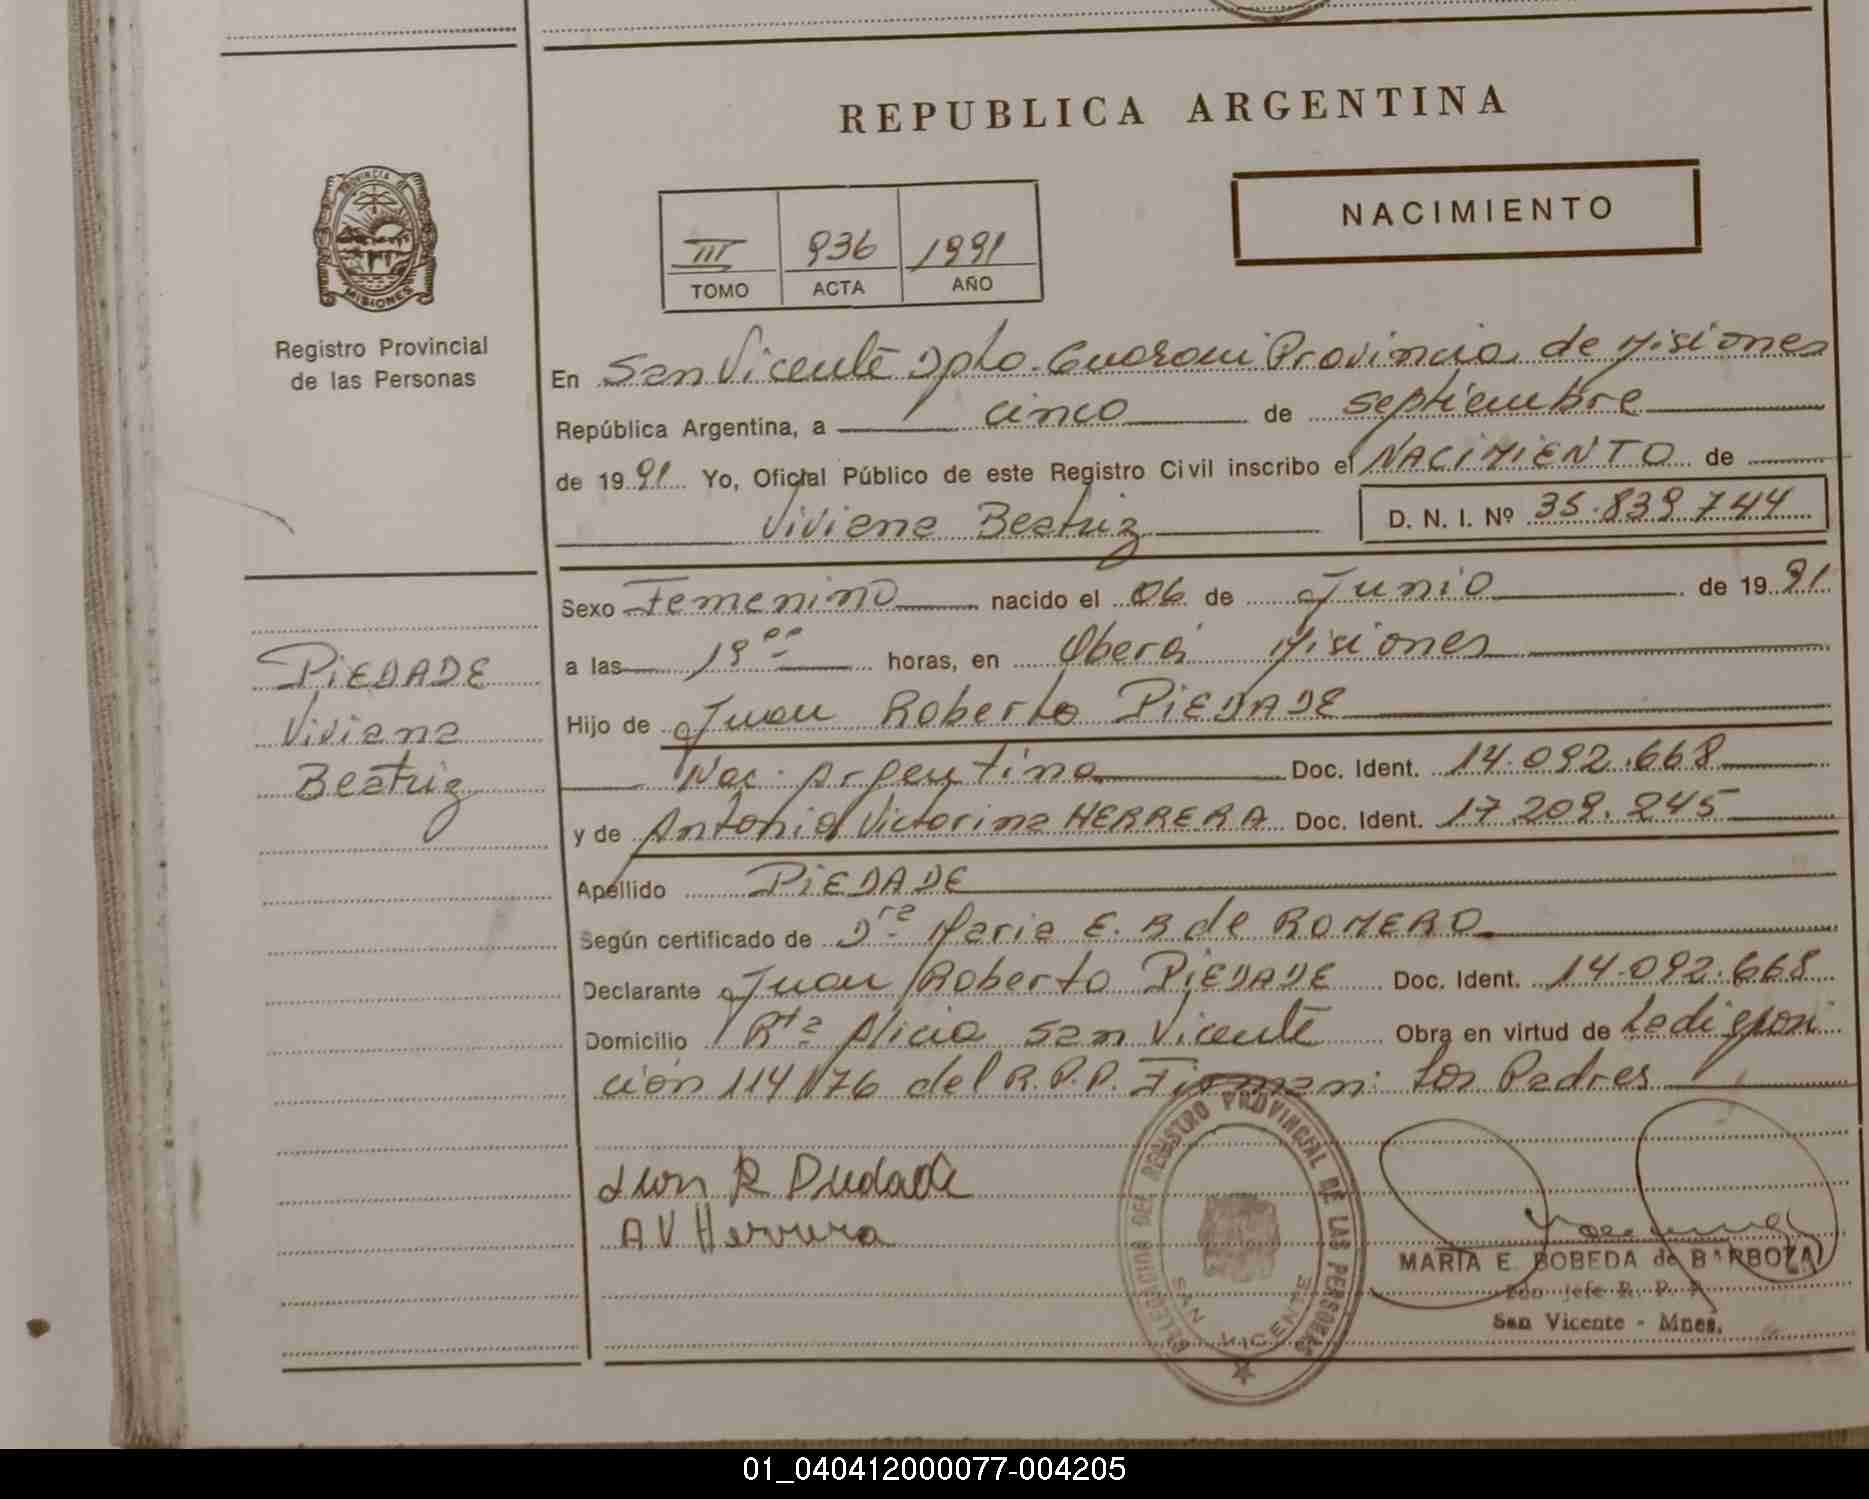 REPUBLICA ARGENTINA
NACIMIENTO
III 936 1991
TOMO ACTA AÑO
PROVINCIA DE MISIONES
Registro Provincial
de las Personas
En San Vicente Dpto. Guarani Provincia de Misiones
República Argentina, a cinco de septiembre
de 1991 Yo, Oficial Público de este Registro Civil inscribo el NACIMIENTO de
Viviana Beatriz D. N. I. Nº 35.839.744
Sexo Femenino nacido el 06 de Junio de 1991
a las horas, en Oberá Misiones
Hijo de Juan Roberto PIEDADE
Nac. Argentina Doc. Ident. 14.092.668
y de Antonia Victorina HERRERA Doc. Ident. 17.209.245
Apellido PIEDADE
Según certificado de Dra Maria E. B de ROMERO
Declarante Juan Roberto PIEDADE Doc. Ident. 14.092.668
Domicilio Rta Alicia San Vicente Obra en virtud de La disposi
ción 114/76 del R.P.P. Firman: Los Padres
PIEDADE
Viviana
Beatriz
Juan R Piedade
A V Herrera
DELEGACION DEL REGISTRO PROVINCIAL DE LAS PERSONAS
SAN VICENTE
MARIA E. BOBEDA de BARBOZA
2do Jefe R. P. P.
San Vicente - Mnes.
01_040412000077-004205